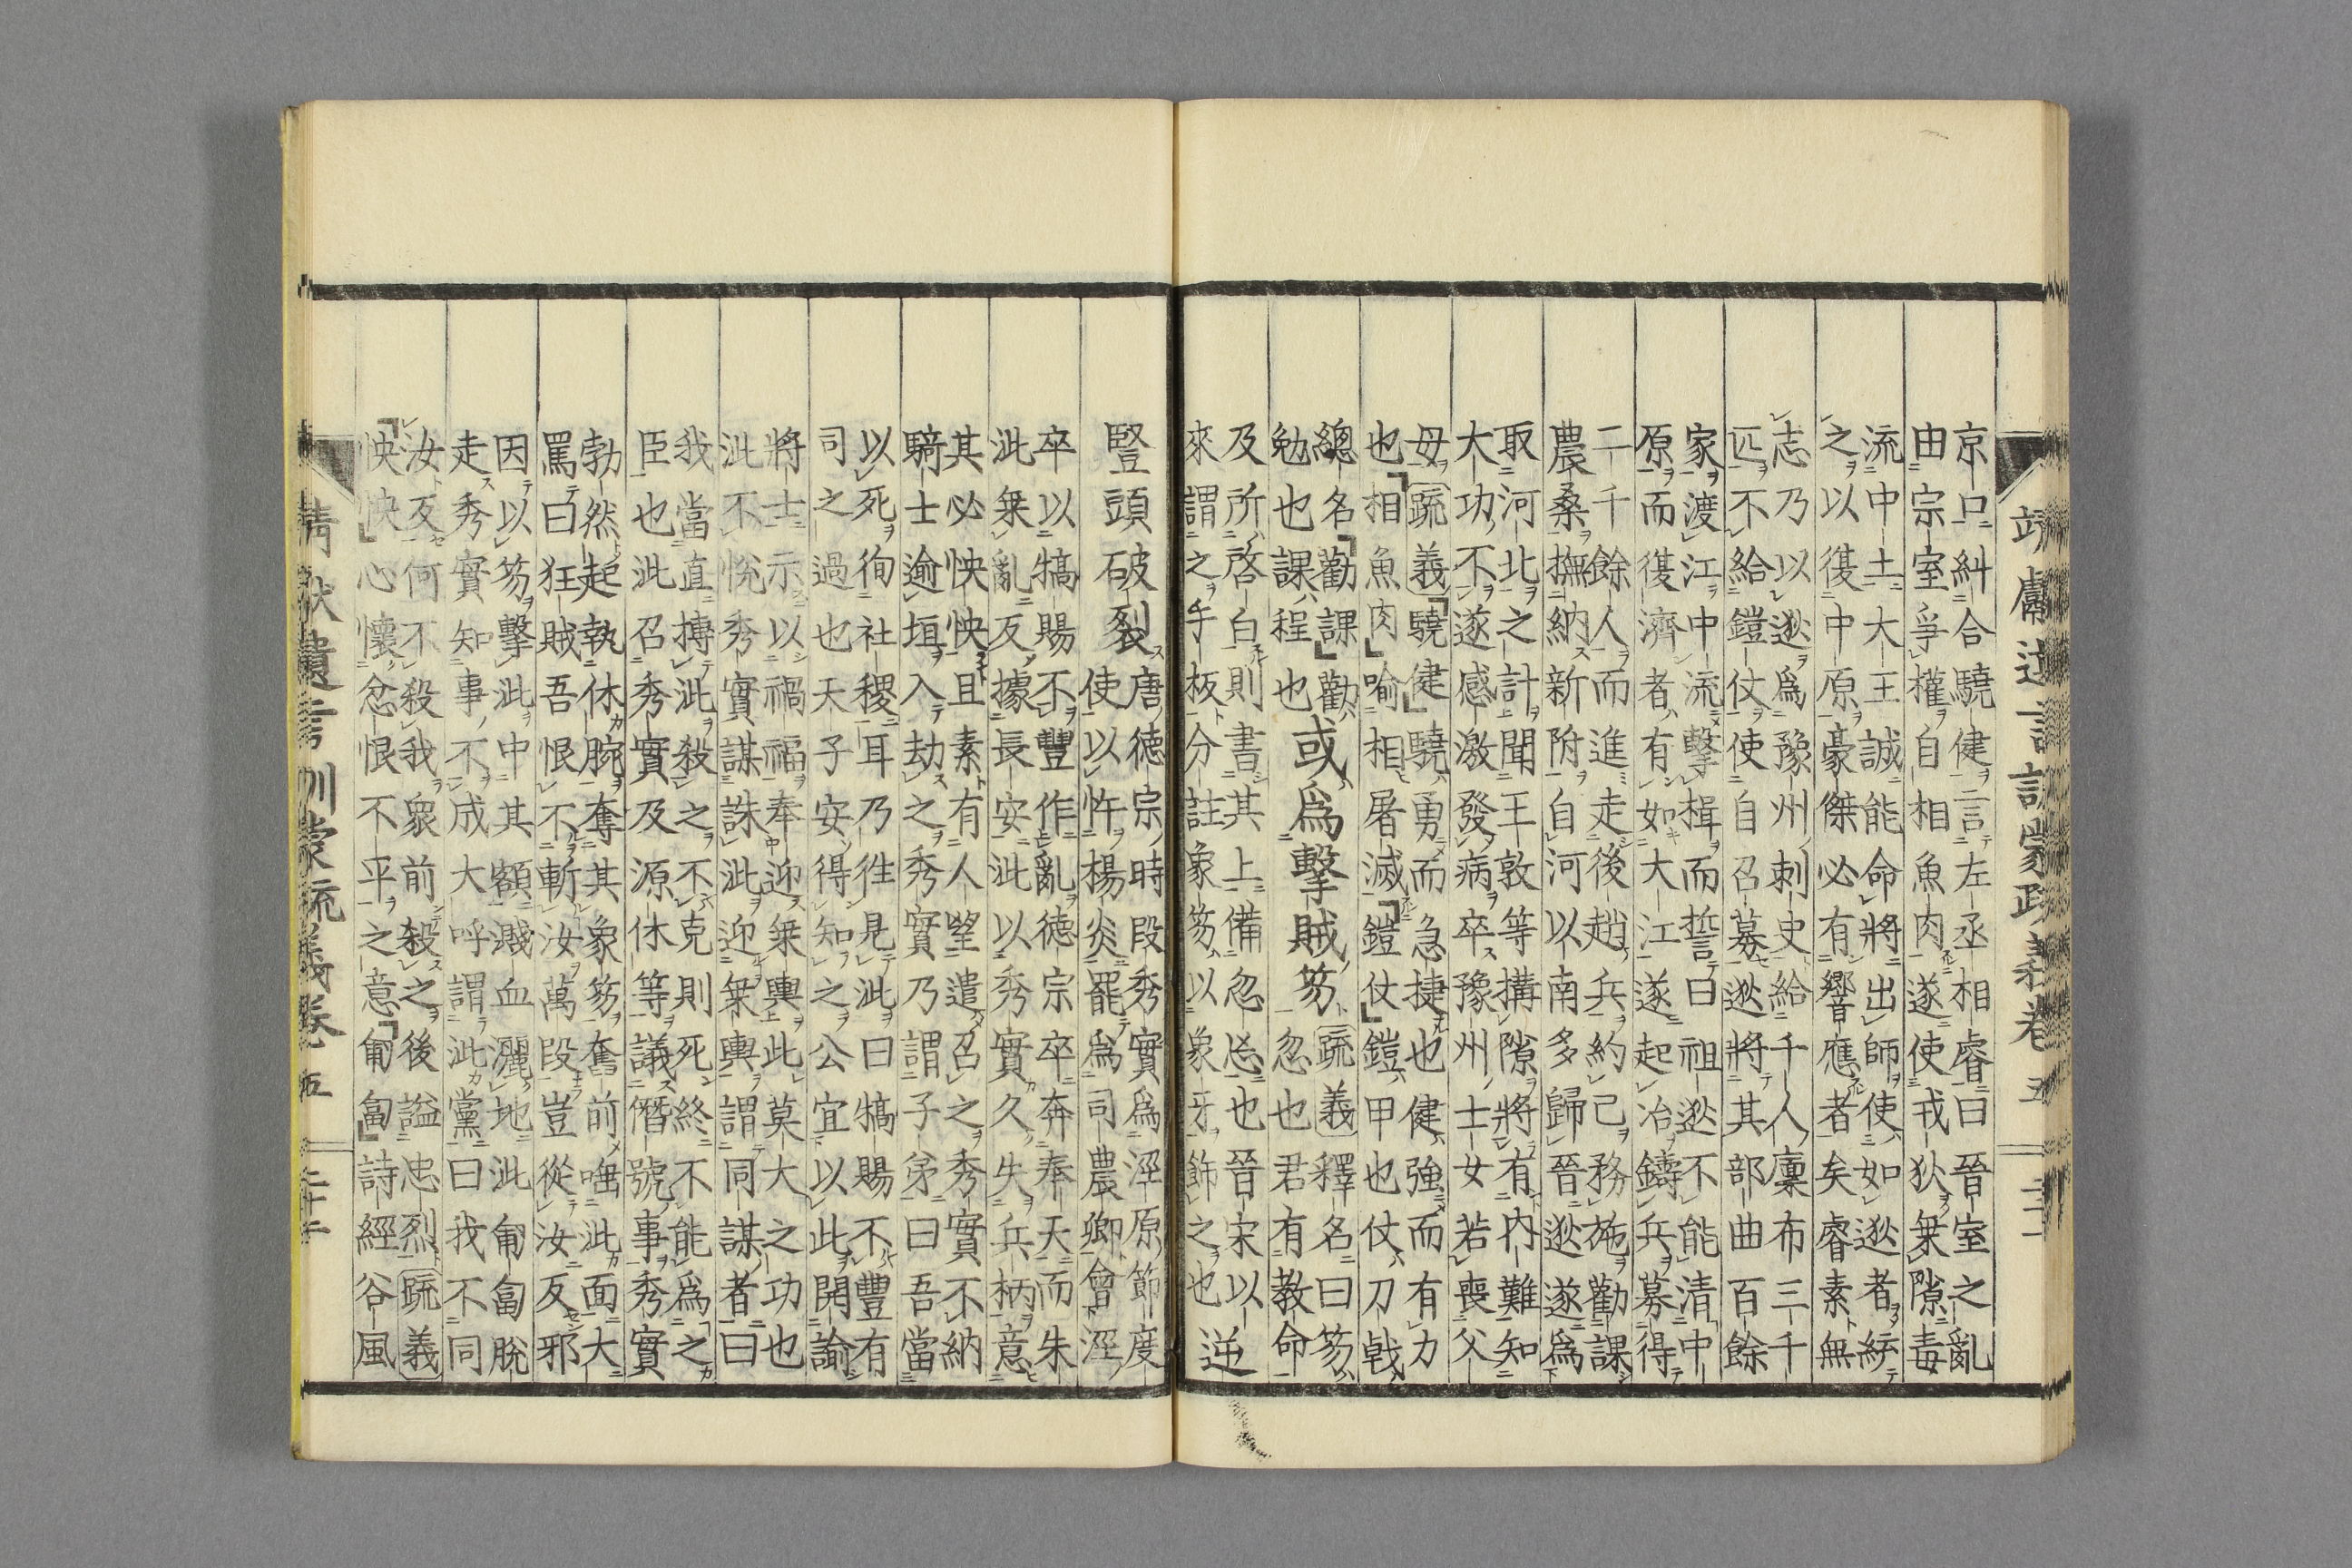 京口糾合驍健言左丞相睿曰晉室之亂
由宗室爭權自相魚肉遂使戎狄乗隙毒
流中土大王誠能命將出師使如逖者統
之以復中原豪傑必有響應者矣睿素無
志乃以逖爲豫州刺史給千人廩布三千
匹不給鎧仗使自召募逖將其部曲百餘
家渡江中流擊楫而誓曰祖逖不能清中
原而復濟者有如大江遂起冶鑄兵募得
二千餘人而進走後趙兵約己務施勸課
農桑撫納新附自河以南多歸晉逖遂爲
取河北之計聞王敦等搆隙將有内難知
大功不遂感激發病卒豫州士女若喪父
母疏義驍健驍勇而急捷也健強而有力
也相魚肉喻相屠滅鎧仗鎧甲也仗刀戟
總名勸課勸
勉也課程也
或爲擊賊笏
疏義釋名曰笏
忽也君有教命
及所啓白則書其上備忽忘也晉宋以
來謂之手板分註象笏以象牙飾之也
逆
豎頭破裂
唐德宗時段秀實爲涇原節度
使以忤楊炎罷爲司農卿會涇
卒以犒賜不豐作亂德宗卒奔奉天而朱
泚乗亂反據長安泚以秀實久失兵柄意
其必怏怏且素有人望遣召之秀實不納
騎士逾垣入劫之秀實乃謂子弟曰吾當
以死徇社稷耳乃往見泚曰犒賜不豐有
司之過也天子安得知之公宜以此開諭
將士示以禍福奉迎乗輿此莫大之功也
泚不悅秀實謀誅泚迎乗輿謂同謀者曰
我當直搏泚殺之不克則死終不能爲之
臣也泚召秀實及源休等議僭號事秀實
勃然起執休腕奪其象笏奮前唾泚面大
罵曰狂賊吾恨不斬汝萬段豈從汝反邪
因以笏擊泚中其額濺血灑地泚匍匐脫
走秀實知事不成大呼謂泚黨曰我不同
汝反何不殺我衆前殺之後諡忠烈疏義
怏怏心懷忿恨不平之意匍匐詩經谷風
靖獻遺言訓蒙疏義卷五